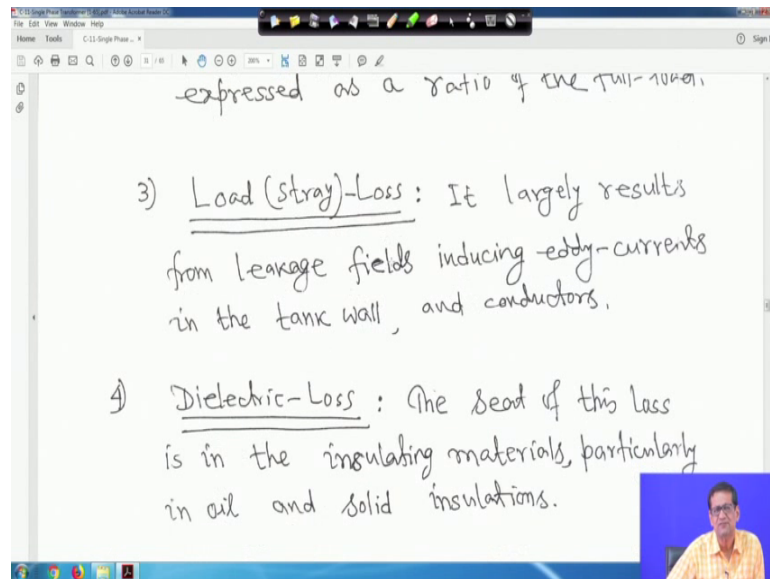 C-11-Single Phase Transformer (5-65).pdf - Adobe Acrobat Reader DC
File Edit View Window Help
Home Tools C-11-Single Phase ... × Sign
31 / 65 200%
expressed as a ratio of the full-load.
3) Load (Stray)-Loss : It largely results
from leakage fields inducing eddy-currents
in the tank wall, and conductors.
4) Dielectric-Loss : The seat of this loss
is in the insulating materials, particularly
in oil and solid insulations.